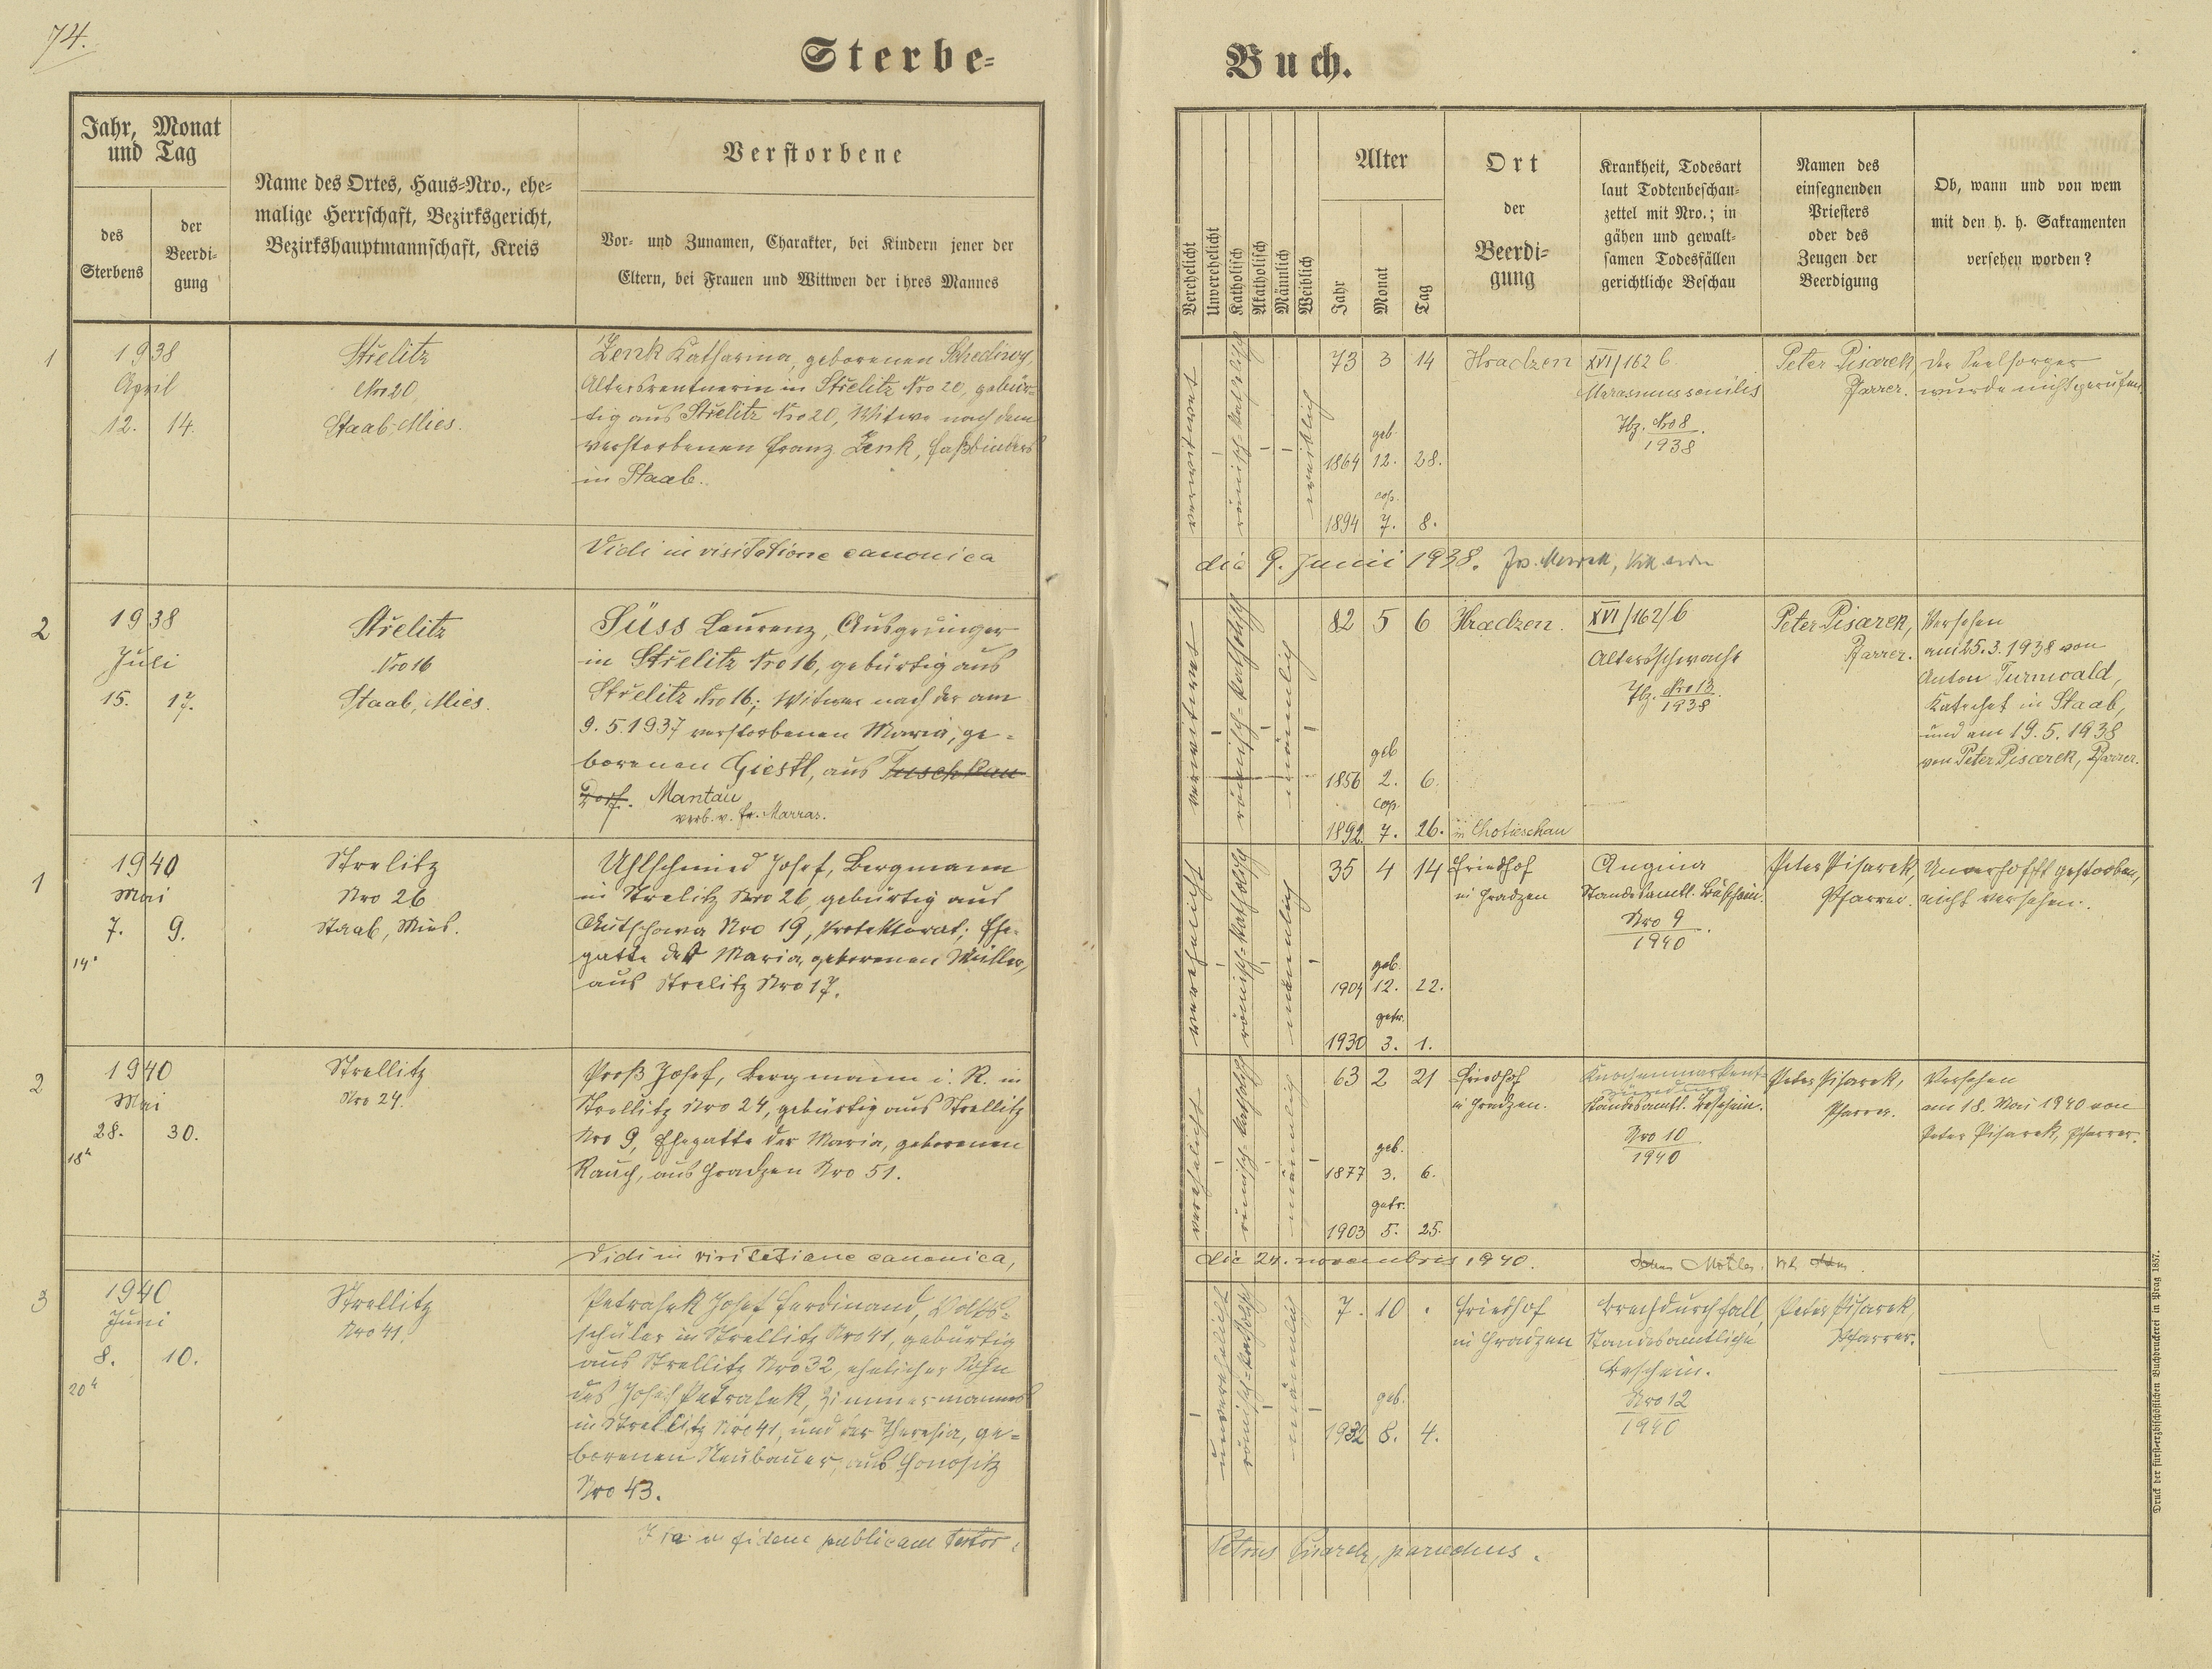 74.
Sterbe-
Jahr, Monat
und Tag
des
Sterbens
der
Beerdi-
gung
Name des Ortes, Haus-Nro., ehe-
malige Herrschaft, Bezirksgericht,
Bezirkshauptmannschaft, Kreis
Verstorbene
Vor- und Zunamen, Charakter, bei Kindern jener der
Eltern, bei Frauen und Wittwen der ihres Mannes
1
1938
April
12. 14.
Střelitz
Nro 20
Staab, Mies.
Zenk Katharina, geborenen
Altersrentnerin in Střelitz Nro 20, gebür-
tig aus Střelitz Nro 20, Witwe nach dem
verstorbenen Franz Zenk, Faßbinders
in Staab.
Vidi in visitatione canonica
2
1938
Juli
15. 17.
Střelitz
Nro 16
Staab, Mies.
Süss Laurenz, Ausgedinger
in Střelitz Nro 16, gebürtig aus
Střelitz Nro 16; Witwer nach der am
9.5.1937 verstorbenen Maria, ge-
borenen Giestl, aus Tuschkau
Dorf. Mantau
verb. v. Fr. Marras.
1
1940
Mai
7. 9.
14h
Strelitz
Nro 26
Staab, Mies.
Uhlschmied Josef, Bergmann
in Strelitz Nro 26, gebürtig aus
Nro 19, Protektorat; Ehe-
gatte der Maria, geborenen Müller,
aus Strelitz Nro 17.
2
1940
Mai
28. 30.
18h
Strellitz
Nro 24.
Proß Josef, Bergmann i. R. in
Strellitz Nro 24, gebürtig aus Strellitz
Nro 9, Ehegatte der Maria, geborenen
Rauch, aus Hradzen Nro 51.
Vidi in visitatione canonica,
3
1940
Juni
8. 10.
20h
Strellitz
Nro 41.
Petrasek Josef Ferdinand, Volks-
schüler in Strellitz Nro 41, gebürtig
aus Strellitz Nro 32, ehelicher Sohn
des Josef Petrasek, Zimmermannes
in Strellitz Nro 41, und der Theresia, ge-
borenen Neubauer, aus Honositz
Nro 43.
Ita in fidem publicam testor:
Buch.
Verehelicht
Unverehelicht
Katholisch
Akatholisch
Männlich
Weiblich
Alter
Jahr
Monat
Tag
Ort
der
Beerdi-
gung
Krankheit, Todesart
laut Todtenbeschau-
zettel mit Nro.; in
gähen und gewalt-
samen Todesfällen
gerichtliche Beschau
Namen des
einsegnenden
Priesters
oder des
Zeugen der
Beerdigung
Ob, wann und von wem
mit den h. h. Sakramenten
versehen worden?
verwitwet
römisch-katholisch
weiblich
73 3 14
geb.
1864 12. 28.
cop.
1894 7. 8.
Hradzen
XVI/162 b
Marasmus senilis
Tbz. Nro 8
1938
Peter Pisarek,
Pfarrer.
Der Seelsorger
wurde nicht gerufen.
die 9. Junii 1938.
verwitwet
römisch-katholisch
männlich
82 5 6
geb
1856 2. 6.
cop.
1892 7. 26. in Chotieschau
Hradzen.
XVI/162/b
Altersschwäche
Tbz. Nro 13.
1938
Peter Pisarek,
Pfarrer.
Versehen
am 25.3.1938 von
Anton Turnwald,
Katechet in Staab,
und am 19.5.1938
von Peter Pisarek, Pfarrer.
verehelicht
römisch-katholisch
männlich
35 4 14
geb.
1904 12. 22.
getr.
1930 3. 1.
Friedhof
in Hradzen
Angina
Standesamtl. Beschein.
Nro 9
1940
Peter Pisarek,
Pfarrer.
Unverhofft gestorben,
nicht versehen.
verehelicht
römisch-katholisch
männlich
63 2 21
geb.
1877 3. 6.
getr.
1903 5. 25.
Friedhof
in Hradzen.
Knochenmarkent-
zündung
Standesamtl. Beschein.
Nro 10
1940
Peter Pisarek,
Pfarrer.
Versehen
am 18. Mai 1940 von
Peter Pisarek, Pfarrer.
die 24. novembris 1940.
unverehelicht
römisch-katholisch
männlich
7. 10 .
geb.
1932 8. 4.
Friedhof
in Hradzen
Brechdurchfall,
Standesamtliche
Beschein.
Nro 12
1940
Peter Pisarek,
Pfarrer.
Petrus Pisarek, parochus.
Druck der fürst-erzbischöflichen Buchdruckerei in Prag 1857.